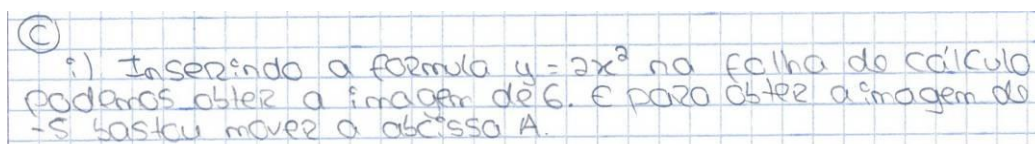 C
i) Inserindo a formula y = 2x² na folha do cálculo
podemos obter a imagem de 6. E para obter a imagem de
-5 bastou mover a abcissa A.